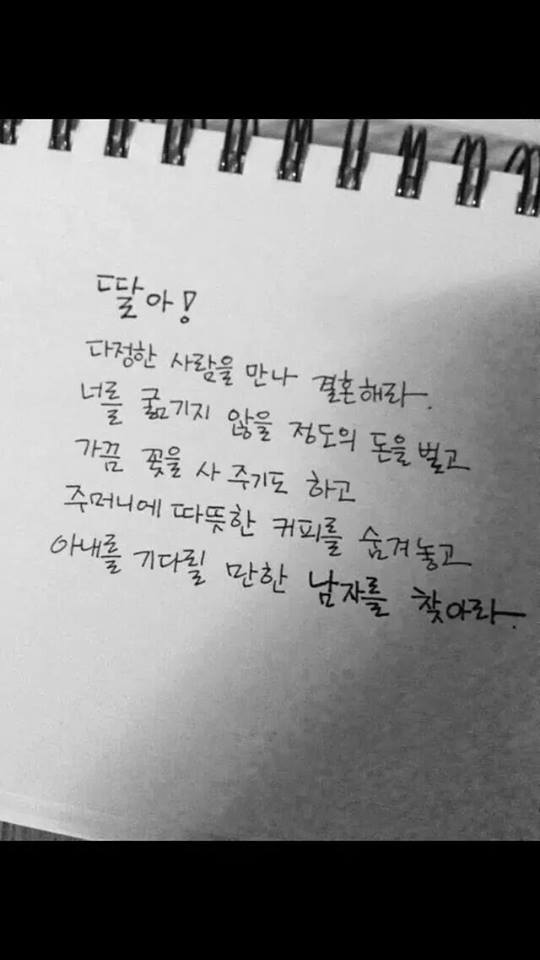 딸아!
다정한 사람을 만나 결혼해라.
너를 굶기지 않을 정도의 돈을 벌고
가끔 꽃을 사 주기도 하고
주머니에 따뜻한 커피를 숨겨놓고
아내를 기다릴 만한 남자를 찾아라.